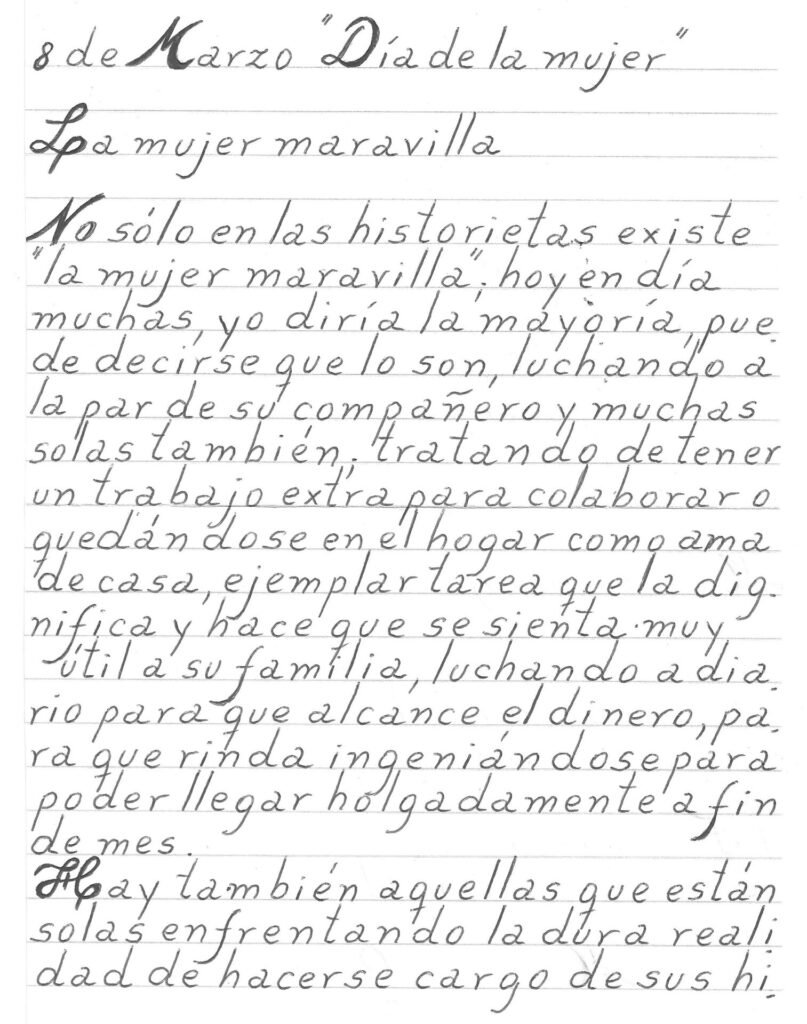 8 de Marzo "Día de la mujer"
La mujer maravilla
No sólo en las historietas existe
"la mujer maravilla"; hoy en día
muchas, yo diría la mayoría, pue-
de decirse que lo son, luchando a
la par de su compañero y muchas
solas también; tratando de tener
un trabajo extra para colaborar o
quedándose en el hogar como ama
de casa, ejemplar tarea que la dig-
nifica y hace que se sienta muy
útil a su familia, luchando a dia-
rio para que alcance el dinero, pa-
ra que rinda ingeniándose para
poder llegar holgadamente a fin
de mes.
Hay también aquellas que están
solas enfrentando la dura reali-
dad de hacerse cargo de sus hi-